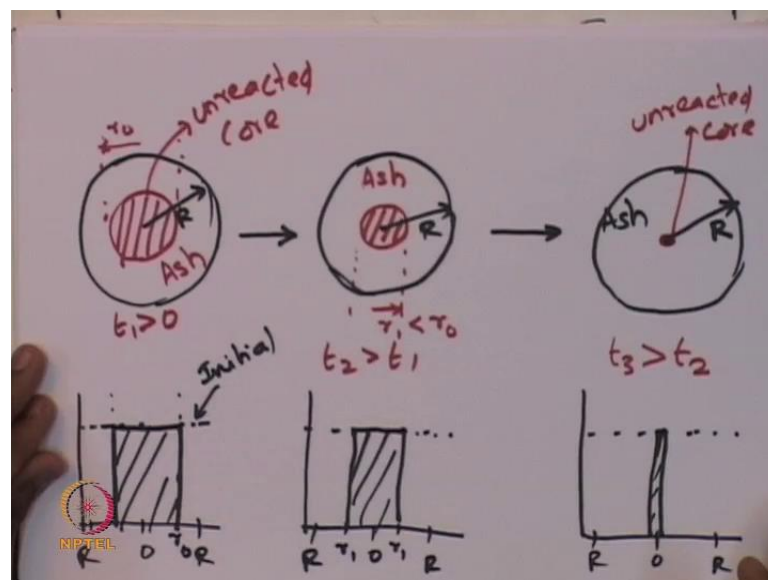 unreacted
core
r₀
R
Ash
t₁ > 0
Ash
R
r₁ < r₀
t₂ > t₁
unreacted
core
Ash
R
t₃ > t₂
Initial
R 0 r₀ R
R r₁ 0 r₁ R
R 0 R
NPTEL